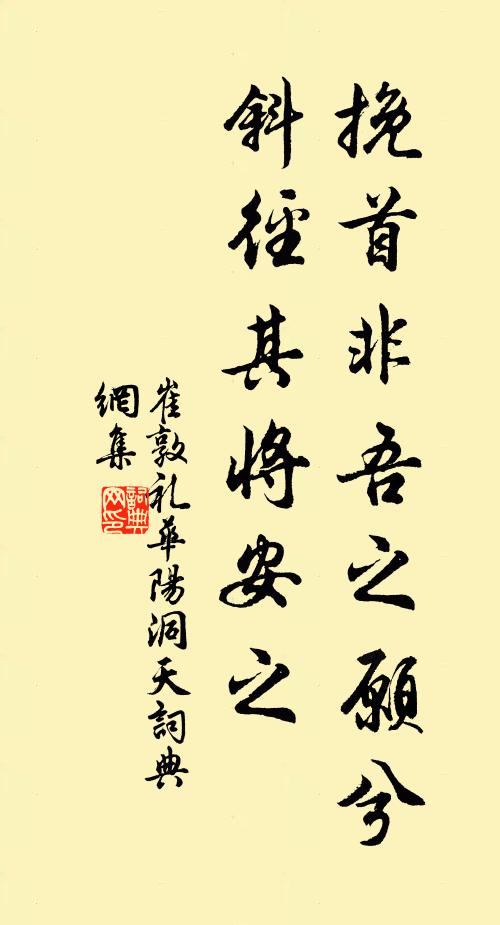 挽首非吾之願兮
斜徑其將安之
崔敦礼華陽洞天詞典
網集
詞典网印